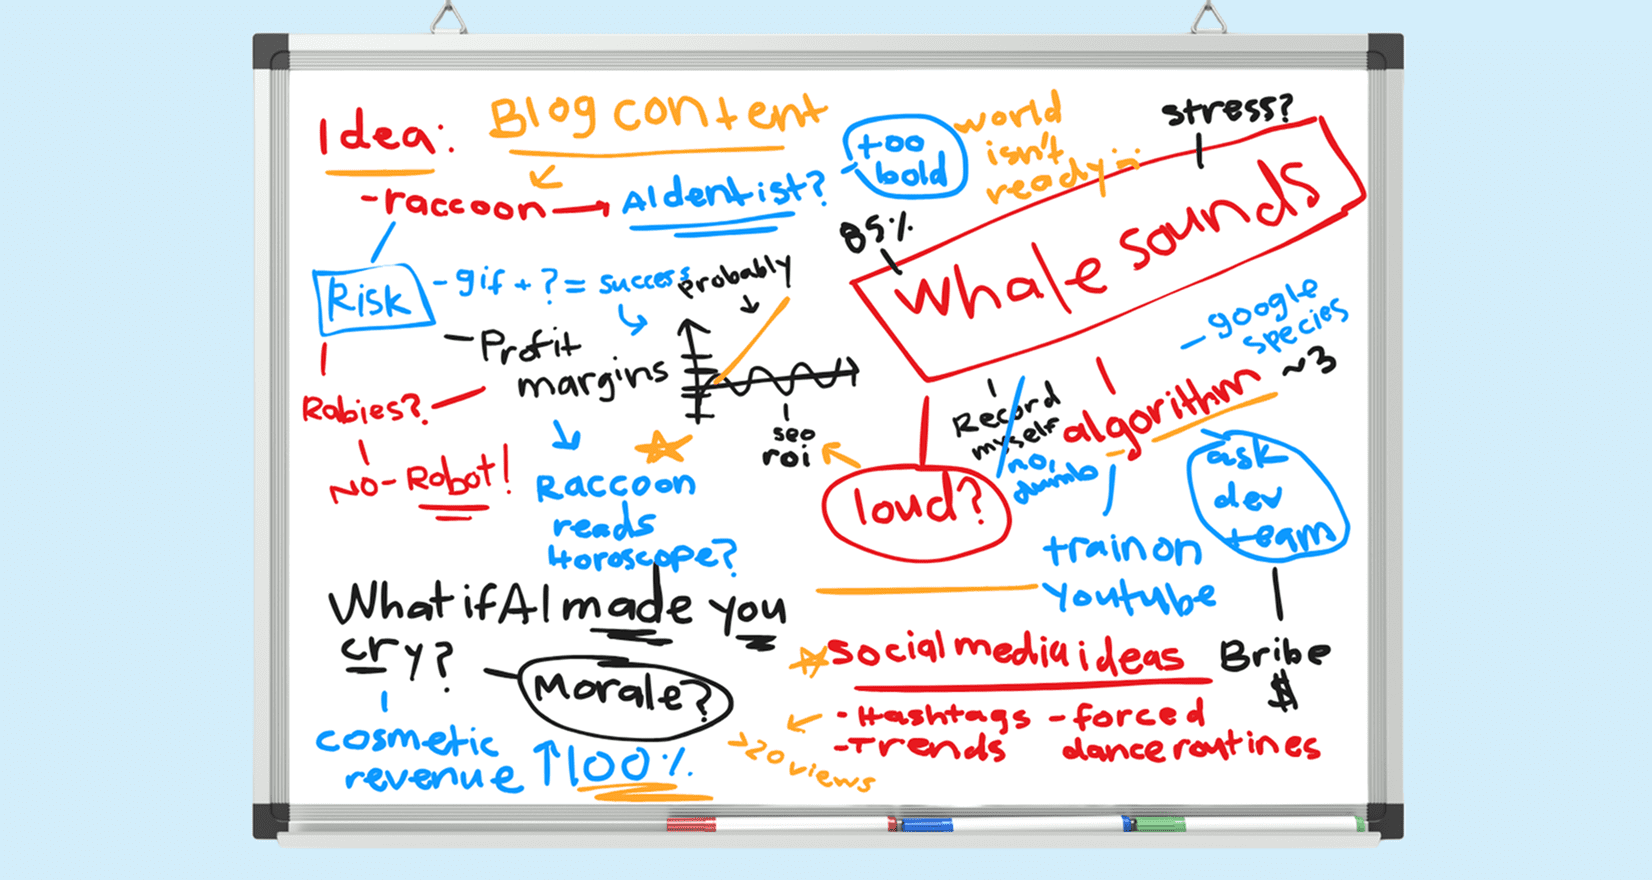 Idea:
Blog content
-raccoon
AI dentist?
too
bold
world
isn't
ready
stress?
85%
Whale sounds
Risk
- gif + ? = success
probably
- Profit
margins
seo
roi
Rabies?
No- Robot!
Raccoon
reads
Horoscope?
loud?
Record
myself
no,
dumb
algorithm
~3
- google
species
ask
dev
team
train on
Youtube
Bribe
$
What if AI made you
cry?
Morale?
cosmetic
revenue ↑100%
social media ideas
- Hashtags
- Trends
- forced
dance routines
>20 views